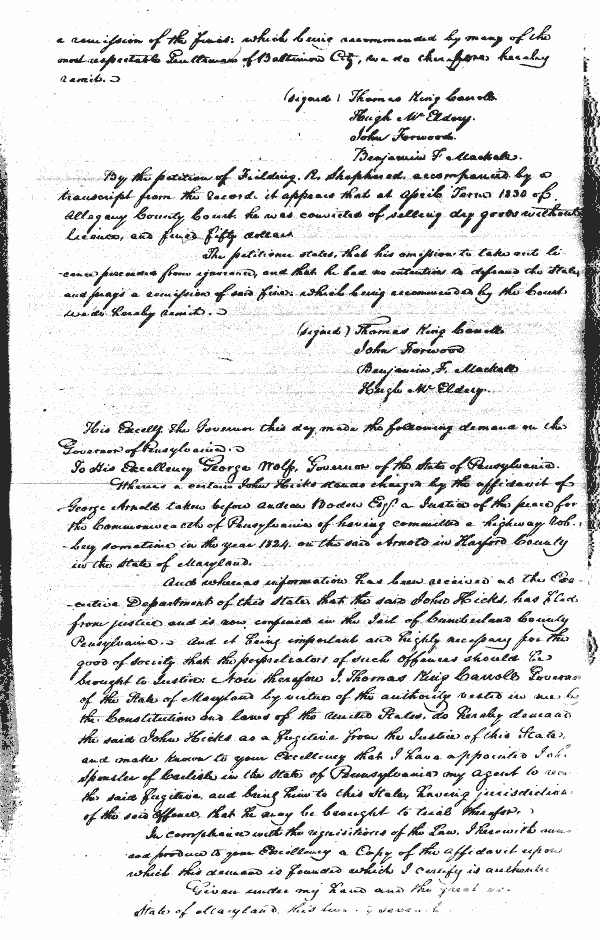 a remission of the fines: which being recommended by many of the
most respectable Gentlemen of Baltimore City, we do therefore hereby
remit.
(signed) Thomas King Carroll
Hugh McEldery.
John Forwood.
Benjamin F. Mackall.
By the petition of Fielding R. Shepherd accompanied by a
transcript from the record it appears that at April Term 1830 of
Allegany County Court he was convicted of selling dry goods without
licence, and fined fifty dollars
The petitioner states, that his omission to take out li-
-cence proceeded from ignorance, and that he had no intention to defraud the State,
and prays a remission of said fine: which being recommended by the Court
we do hereby remit.
(signed) Thomas King Carroll
John Forwood
Benjamin F. Mackall
Hugh McEldery.
His Excelly. the Governor this day made the following demand on the
Governor of Pennsylvania.
To His Excellency George Wolf, Governor of the State of Pennsylvania.
Whereas a certain John Hicks stands charged by the affidavit of
George Arnold taken before Andrew Boden Esqr. a Justice of the peace for
the Commonwealth of Pennsylvania of having committed a highway rob-
-bery sometime in the year 1824 on the said Arnold in Harford County
in the State of Maryland.
And whereas information has been received at the Exe-
-cutive Department of this State that the said John Hicks, has fled
from justice and is now confined in the Jail of Cumberland County
Pennsylvania. And it being important and highly necessary for the
good of society that the perpetrators of such Offences should be
brought to Justice. Now therefore I Thomas King Carroll Governor
of the State of Maryland by virtue of the authority vested in me by
the Constitution and laws of the United States, do hereby demand
the said John Hicks as a fugitive from the Justice of this State,
and make known to your Excellency that I have appointed
Sponsler of Carlisle in the State of Pennsylvania my agent to
the said fugitive, and bring him to this State, having jurisdiction
of the said Offence, that he may be brought to trial therefor.
In compliance with the requisitions of the Law, I herewith
and produce to your Excellency a Copy of the affidavit upon
which this demand is founded which I certify is authentic
Given under my hand and the great
State of Maryland, this